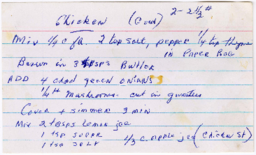 Chicken (Cond) 2 - 2 1/2
Mix 1/4 c fl. 2 tsp salt, pepper 1/4 tsp thyme
in Paper Bag
Brown in 3 tbsps Butter
ADD 4 chpd green onions
1/4 # mushrooms cut in quarters
Cover + simmer 3 min
Mix 2 tbsps lemon jce
1 tsp sugar 1/3 c. apple jce (Chicken St)
1 tsp salt